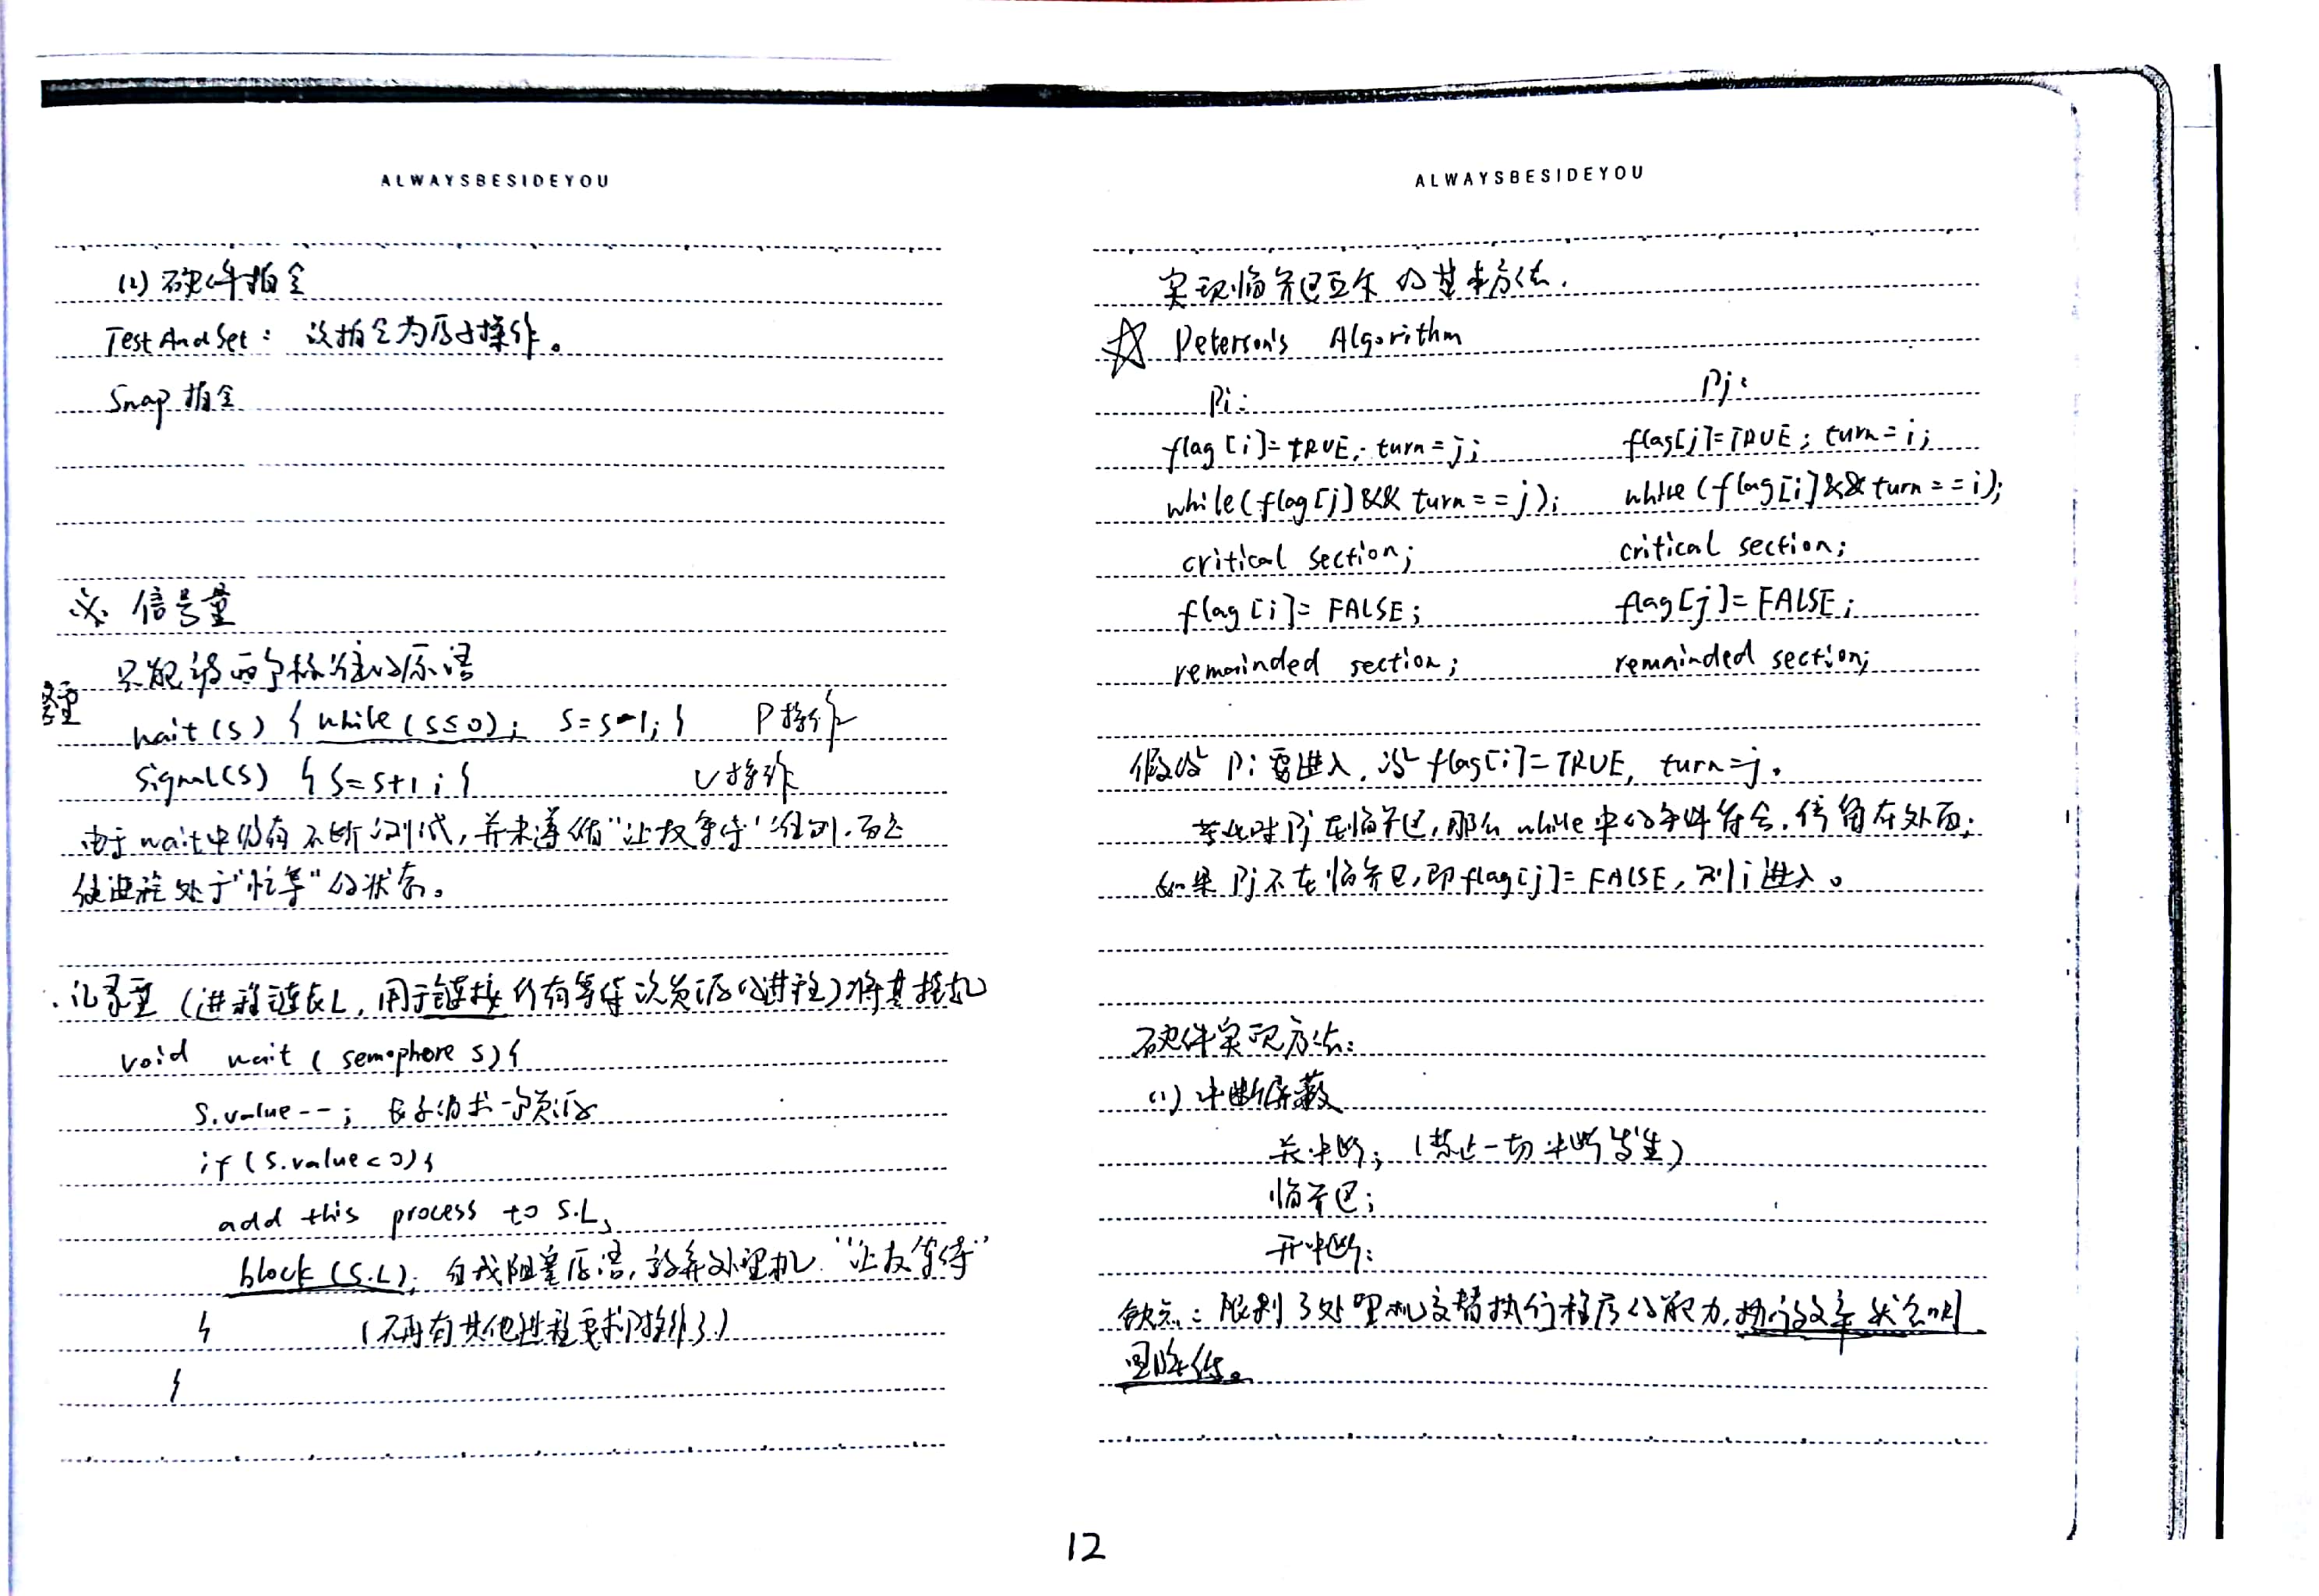 ALWAYSBESIDEYOU
(2) 硬件指令
TestAndSet： 该指令为原子操作。
Swap 指令
※ 信号量
只能被两个标准的原语
整型
wait(S) { while(S≤0); S=S-1; } P操作
signal(S) { S=S+1; } V操作
由于wait中仍有不断测试，并未遵循“让权等待”准则，而是
使进程处于“忙等”的状态。
记录型（进程链表L，用于链接所有等待该资源的进程）将其挂起
void wait ( semophore S){
S.value--； 表示消求一个资源
if (S.value<0){
add this process to S.L;
block(S.L); 自我阻塞原语，放弃处理机 “让权等待”
} （不再有其他进程要求）
}
ALWAYSBESIDEYOU
实现临界区互斥的基本方法.
☆ Peterson's Algorithm
Pi: Pj:
flag[i]=TRUE; turn=j; flag[j]=TRUE; turn=i;
while(flag[j]&& turn==j); while(flag[i]&&turn==i);
critical section; critical section;
flag[i]= FALSE; flag[j]=FALSE;
remainded section; remainded section;
假设 Pi要进入，设 flag[i]=TRUE, turn=j。
若此时Pj在临界区，那么while中的条件符合，停留在外面；
如果Pj不在临界区，即flag[j]=FALSE，则i进入。
硬件实现方法：
(1) 中断屏蔽
关中断；（禁止一切中断发生）
临界区；
开中断；
缺点：限制了处理机交替执行程序的能力，执行效率会明
显降低。
12